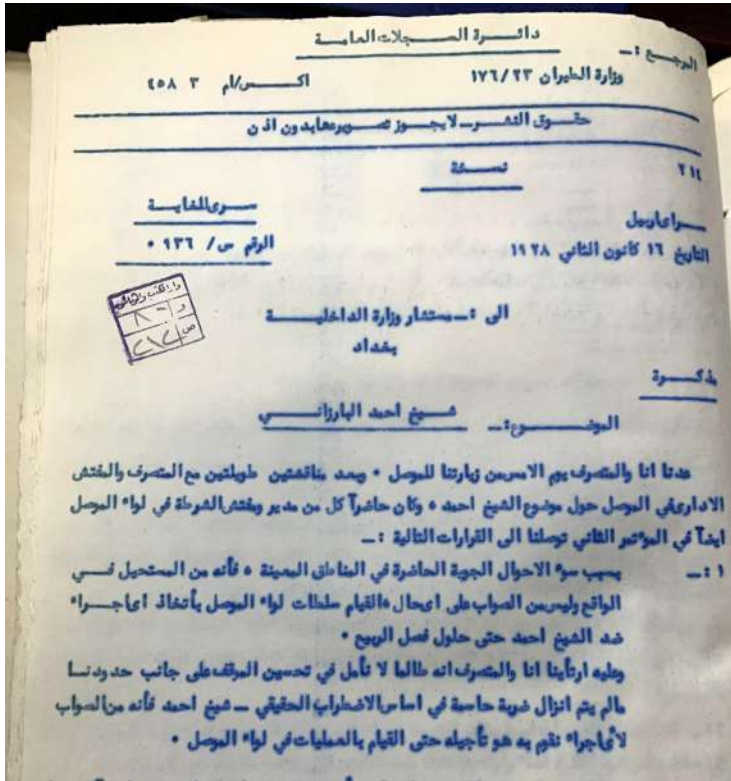 دائــرة الســجلات العامــة
المرجــع :ــ
وزارة الطيران ١٧٦/٢٣ اكــس/ام ٣ ٤٥٨
حقــوق النشــر ــ لا يجــوز تصــويرها بدون اذن
٢١٤ نســخة
ســرى للغايــة
ســراى اربيل
الرقم س/ ٩٣٦ ٠
التاريخ ١٦ كانون الثاني ١٩٢٨
دار الكتب والوثائق
و ٨٠
ص ٢١٤
الى :ــ مستشار وزارة الداخليــة
بغداد
مذكــرة
الموضــوع :ــ شــيخ احمد البارزانــي
عدنا انا والمتصرف يوم الامس من زيارتنا للموصل ٠ وبعد مناقشتين طويلتين مع المتصرف والمفتش
الادارى في الموصل حول موضوع الشيخ احمد ٠ وكان حاضرآ كل من مدير ومفتش الشرطة في لواء الموصل
ايضآ في المؤتمر الثاني توصلنا الى القرارات التالية :ــ
١ :ــ بسبب سوء الاحوال الجوية الحاضرة في المناطق المعينة ٠ فأنه من المستحيل فــي
الواقع وليس من الصواب على اى حال ، القيام سلطات لواء الموصل بأتخاذ اى اجــراء
ضد الشيخ احمد حتى حلول فصل الربيع ٠
وعليه ارتأينا انا والمتصرف انه طالما لا نأمل في تحسين الموقف على جانب حدودنــا
مالم يتم انزال ضربة حاسمة في اساس الاضطراب الحقيقي ــ شيخ احمد فأنه من الصواب
لأى اجراء نقوم به هو تأجيله حتى القيام بالعمليات في لواء الموصل ٠